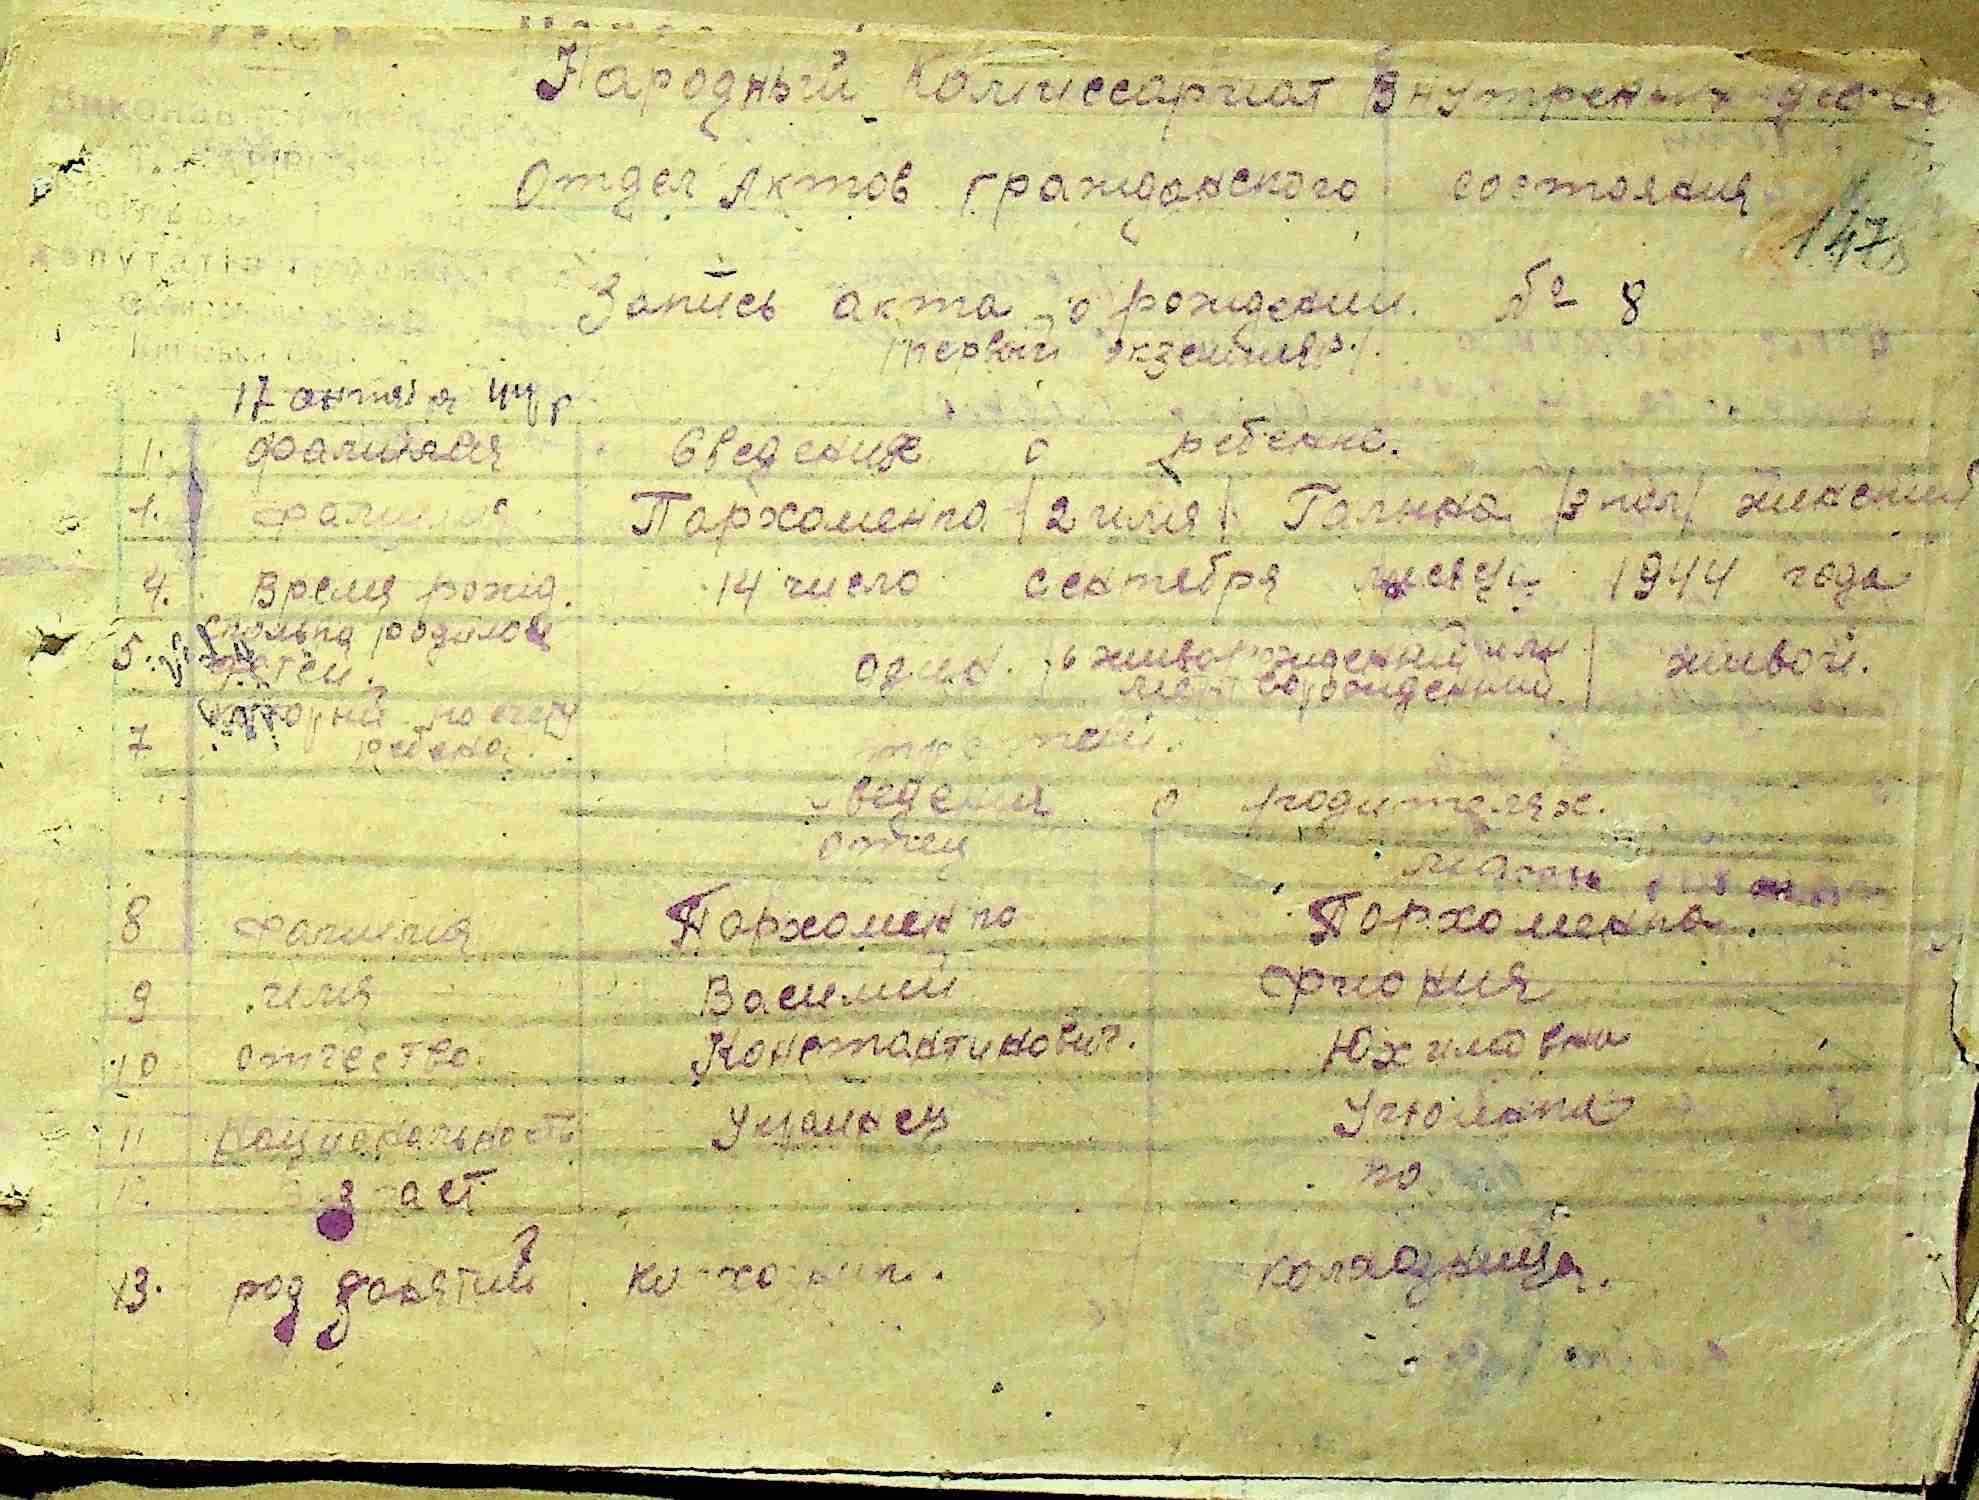 Народный Комиссариат Внутренних дел
Отдел Актов гражданского состояния
147
Запись акта о рождении. № 8
/первый экземпляр./
17 44 г
1. фамилия Сведения о ребенке.
1. Фамилия Пархоменко /2 имя/ Галина /3 пол/ женский
4. Время рожд. 14 число сентября месяца 1944 года
5. сколько родилось
детей. один. 6 живорожденный или
мертворожденный живой.
7 который по счету
ребенок. третий.
сведения о родителях.
отец
мать
8 Фамилия Пархоменко Пархоменко.
9 имя Василий Фиония
10 отчество. Константинович. Юхимовна
11 национальность Украинец
12.
13. род занятий колхозник. колхозница.